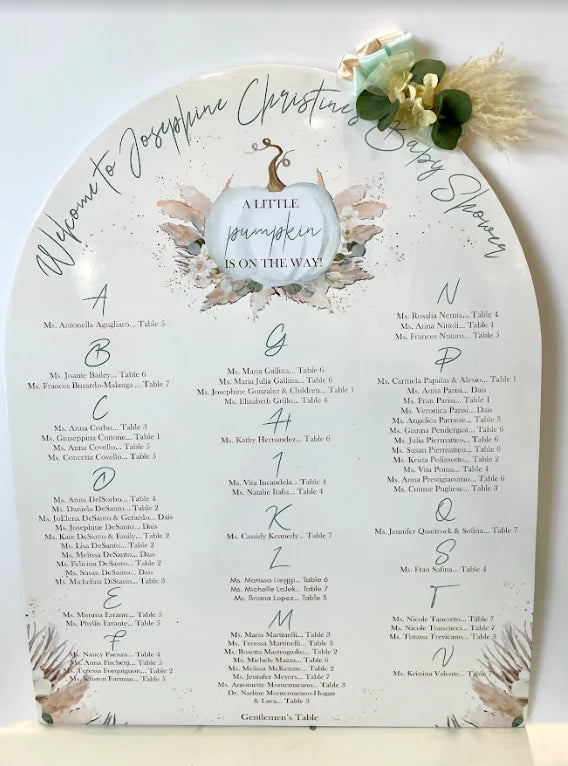 Welcome to Josephine Christine's Baby Shower
A LITTLE
pumpkin
IS ON THE WAY!
A
Ms. Antonella Agagliaro... Table 5
B
Ms. Joanie Bailey... Table 6
Ms. Frances Busardo-Malanga... Table 7
C
Ms. Anna Corbo... Table 3
Ms. Giuseppina Cottone... Table 1
Ms. Anna Covello... Table 5
Ms. Concetta Covello... Table 5
D
Ms. Anna DelSorbo... Table 4
Ms. Daniela DeSanto... Table 2
Ms. JoElena DeSanto & Gerardo... Dais
Ms. Josephine DeSanto... Dais
Ms. Kate DeSanto & Emily... Table 2
Ms. Lisa DeSanto... Table 2
Ms. Melissa DeSanto... Dais
Ms. Felicina DeSanto... Table 2
Ms. Susan DeSanto... Dais
Ms. Michelina DiStasio... Table 3
E
Ms. Minerna Errante... Table 5
Ms. Phyllis Errante... Table 5
F
Ms. Nancy Faenza... Table 4
Ms. Anna Fischetti... Table 5
Ms. Teresa Forquignon... Table 2
Ms. Kristen Furman... Table 5
G
Ms. Maria Gallina... Table 6
Ms. Maria Julia Gallina... Table 6
Ms. Josephine Gonzalez & Children... Table 1
Ms. Elizabeth Grillo... Table 4
H
Ms. Kathy Hernandez... Table 6
I
Ms. Vita Incandela... Table 4
Ms. Natalie Italia... Table 4
K
Ms. Cassidy Kennedy... Table 7
L
Ms. Marissa Lieggi... Table 6
Ms. Michelle LaJek... Table 7
Ms. Briana Lopez... Table 5
M
Ms. Maria Martinelli... Table 3
Ms. Teressa Martinelli... Table 3
Ms. Rosetta Mastrogullo... Table 2
Ms. Michele Mazza... Table 6
Ms. Melissa McKenzie... Table 2
Ms. Jennifer Meyers... Table 7
Ms. Antoinette Montemarano... Table 3
Dr. Nadine Montemarano-Hogan
& Luca... Table 3
Gentlemen's Table
N
Ms. Rosalia Nemia... Table 4
Ms. Anna Nittoli... Table 1
Ms. Frances Notaro... Table 5
P
Ms. Carmela Papalas & Alessio... Table 1
Ms. Anna Parisi... Dais
Ms. Fran Parisi... Table 4
Ms. Veronica Parisi... Dais
Ms. Angelica Parnese... Table 3
Ms. Gianna Pendergast... Table 6
Ms. Julia Piermatteo... Table 6
Ms. Susan Piermatteo... Table 6
Ms. Kenta Polizzotto... Table 2
Ms. Vita Poma... Table 4
Ms. Anna Prestigiacomo... Table 6
Ms. Connie Pugliese... Table 3
Q
Ms. Jennifer Quattrock & Sofina... Table 7
S
Ms. Fran Safina... Table 4
T
Ms. Nicole Tancorto... Table 7
Ms. Nicole Trancucci... Table 7
Ms. Tiziana Trevicano... Table 3
V
Ms. Kristina Valente... Table 7